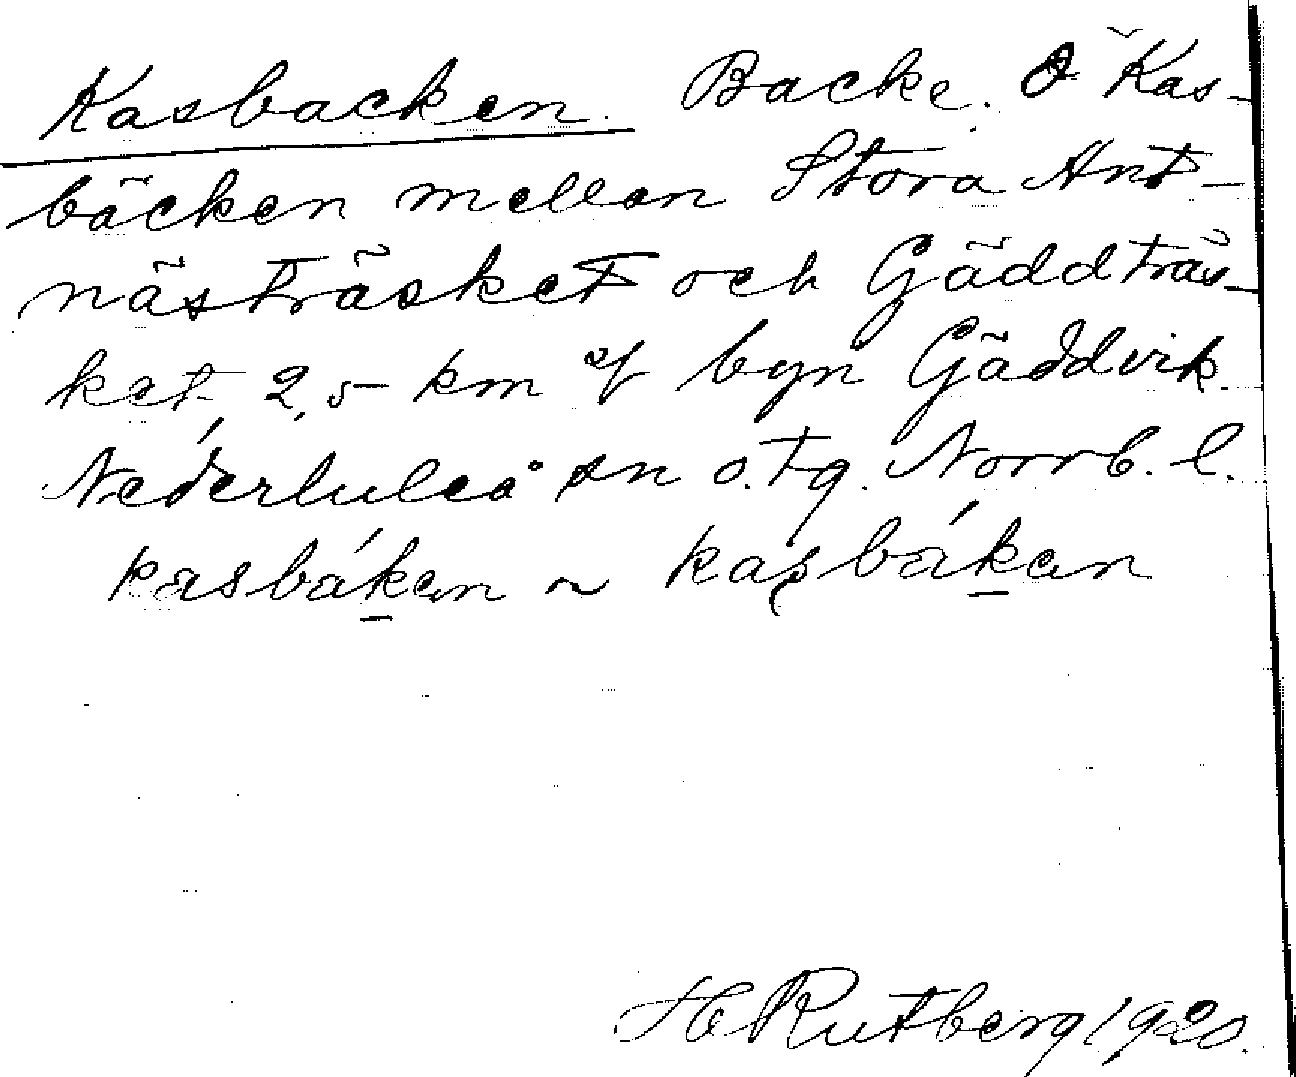 Kasbacken. Backe. Ö Kas-
bäcken mellan Stora Ant-
nästräsket och Gäddträs-
ket, 2,5 km af byn Gäddvik.
Nederluleå sn o. tg. Norrb. l.
kasbákan ~ kasbákan
H Rutberg 1920.